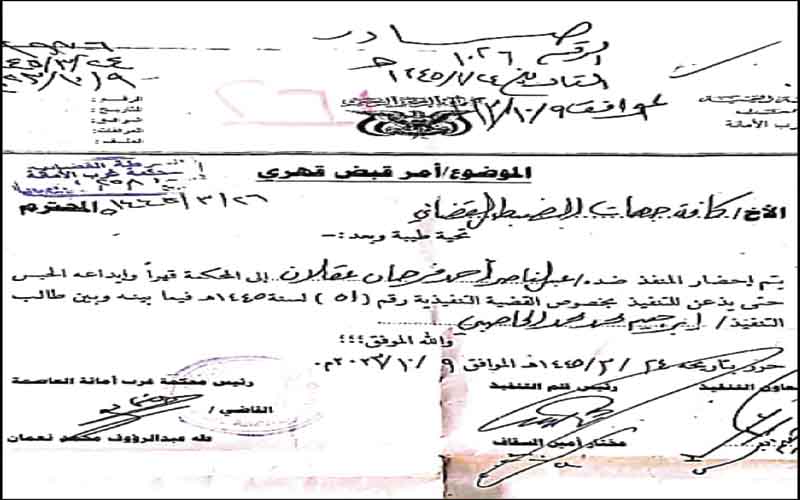 صادر
الرقم ١٠٢٦
التاريخ ١٤٤٥/٣/٢٤ هـ
الموافق ٢٠٢٣/١٠/٩
غرب الأمانة
الرقم:
التاريخ:
الموافق:
المرفقات:
الملف:
الشرطة القضائية
محكمة غرب الأمانة
١٤٤٥/٣/٢٦
الموضوع/أمر قبض قهري
الأخ/ كافة جهات الضبط القضائي المحترم
تحية طيبة وبعد:-
يتم إحضار المنفذ ضده/ عبدالناصر أحمد فرحان عقلان إلى المحكمة قهراً وإيداعه الحبس
حتى يذعن للتنفيذ بخصوص القضية التنفيذية رقم (٥١) لسنة ١٤٤٥هـ فيما بينه وبين طالب
التنفيذ/ ابراهيم محمد محمد
والله الموفق؛؛؛
حرر بتاريخه ٢٤ /٣/ ١٤٤٥هـ الموافق ٩ /١٠/ ٢٠٢٣م.
معاون التنفيذ
رئيس قلم التنفيذ
رئيس محكمة غرب أمانة العاصمة
القاضي/
مختار أمين السقاف
طه عبدالرؤوف محمد نعمان